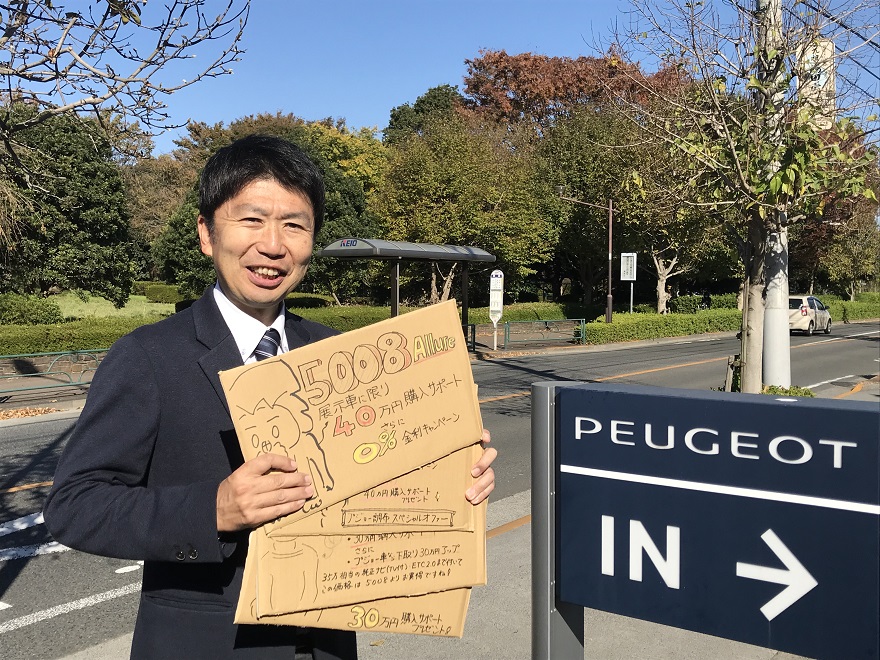 KEIO
5008 Allure
展示車に限り
40万円購入サポート
さらに
0%金利キャンペーン
40万円購入サポート
プレゼント!
プジョー調布スペシャルオファー
30万円購入サポート
さらに
プジョー車から下取り30万円UP
35万相当の純正ナビ(TV付) ETC2.0まで付いて
この価格は5008よりお買得ですね!
30万円購入サポート
プレゼント!
PEUGEOT
IN